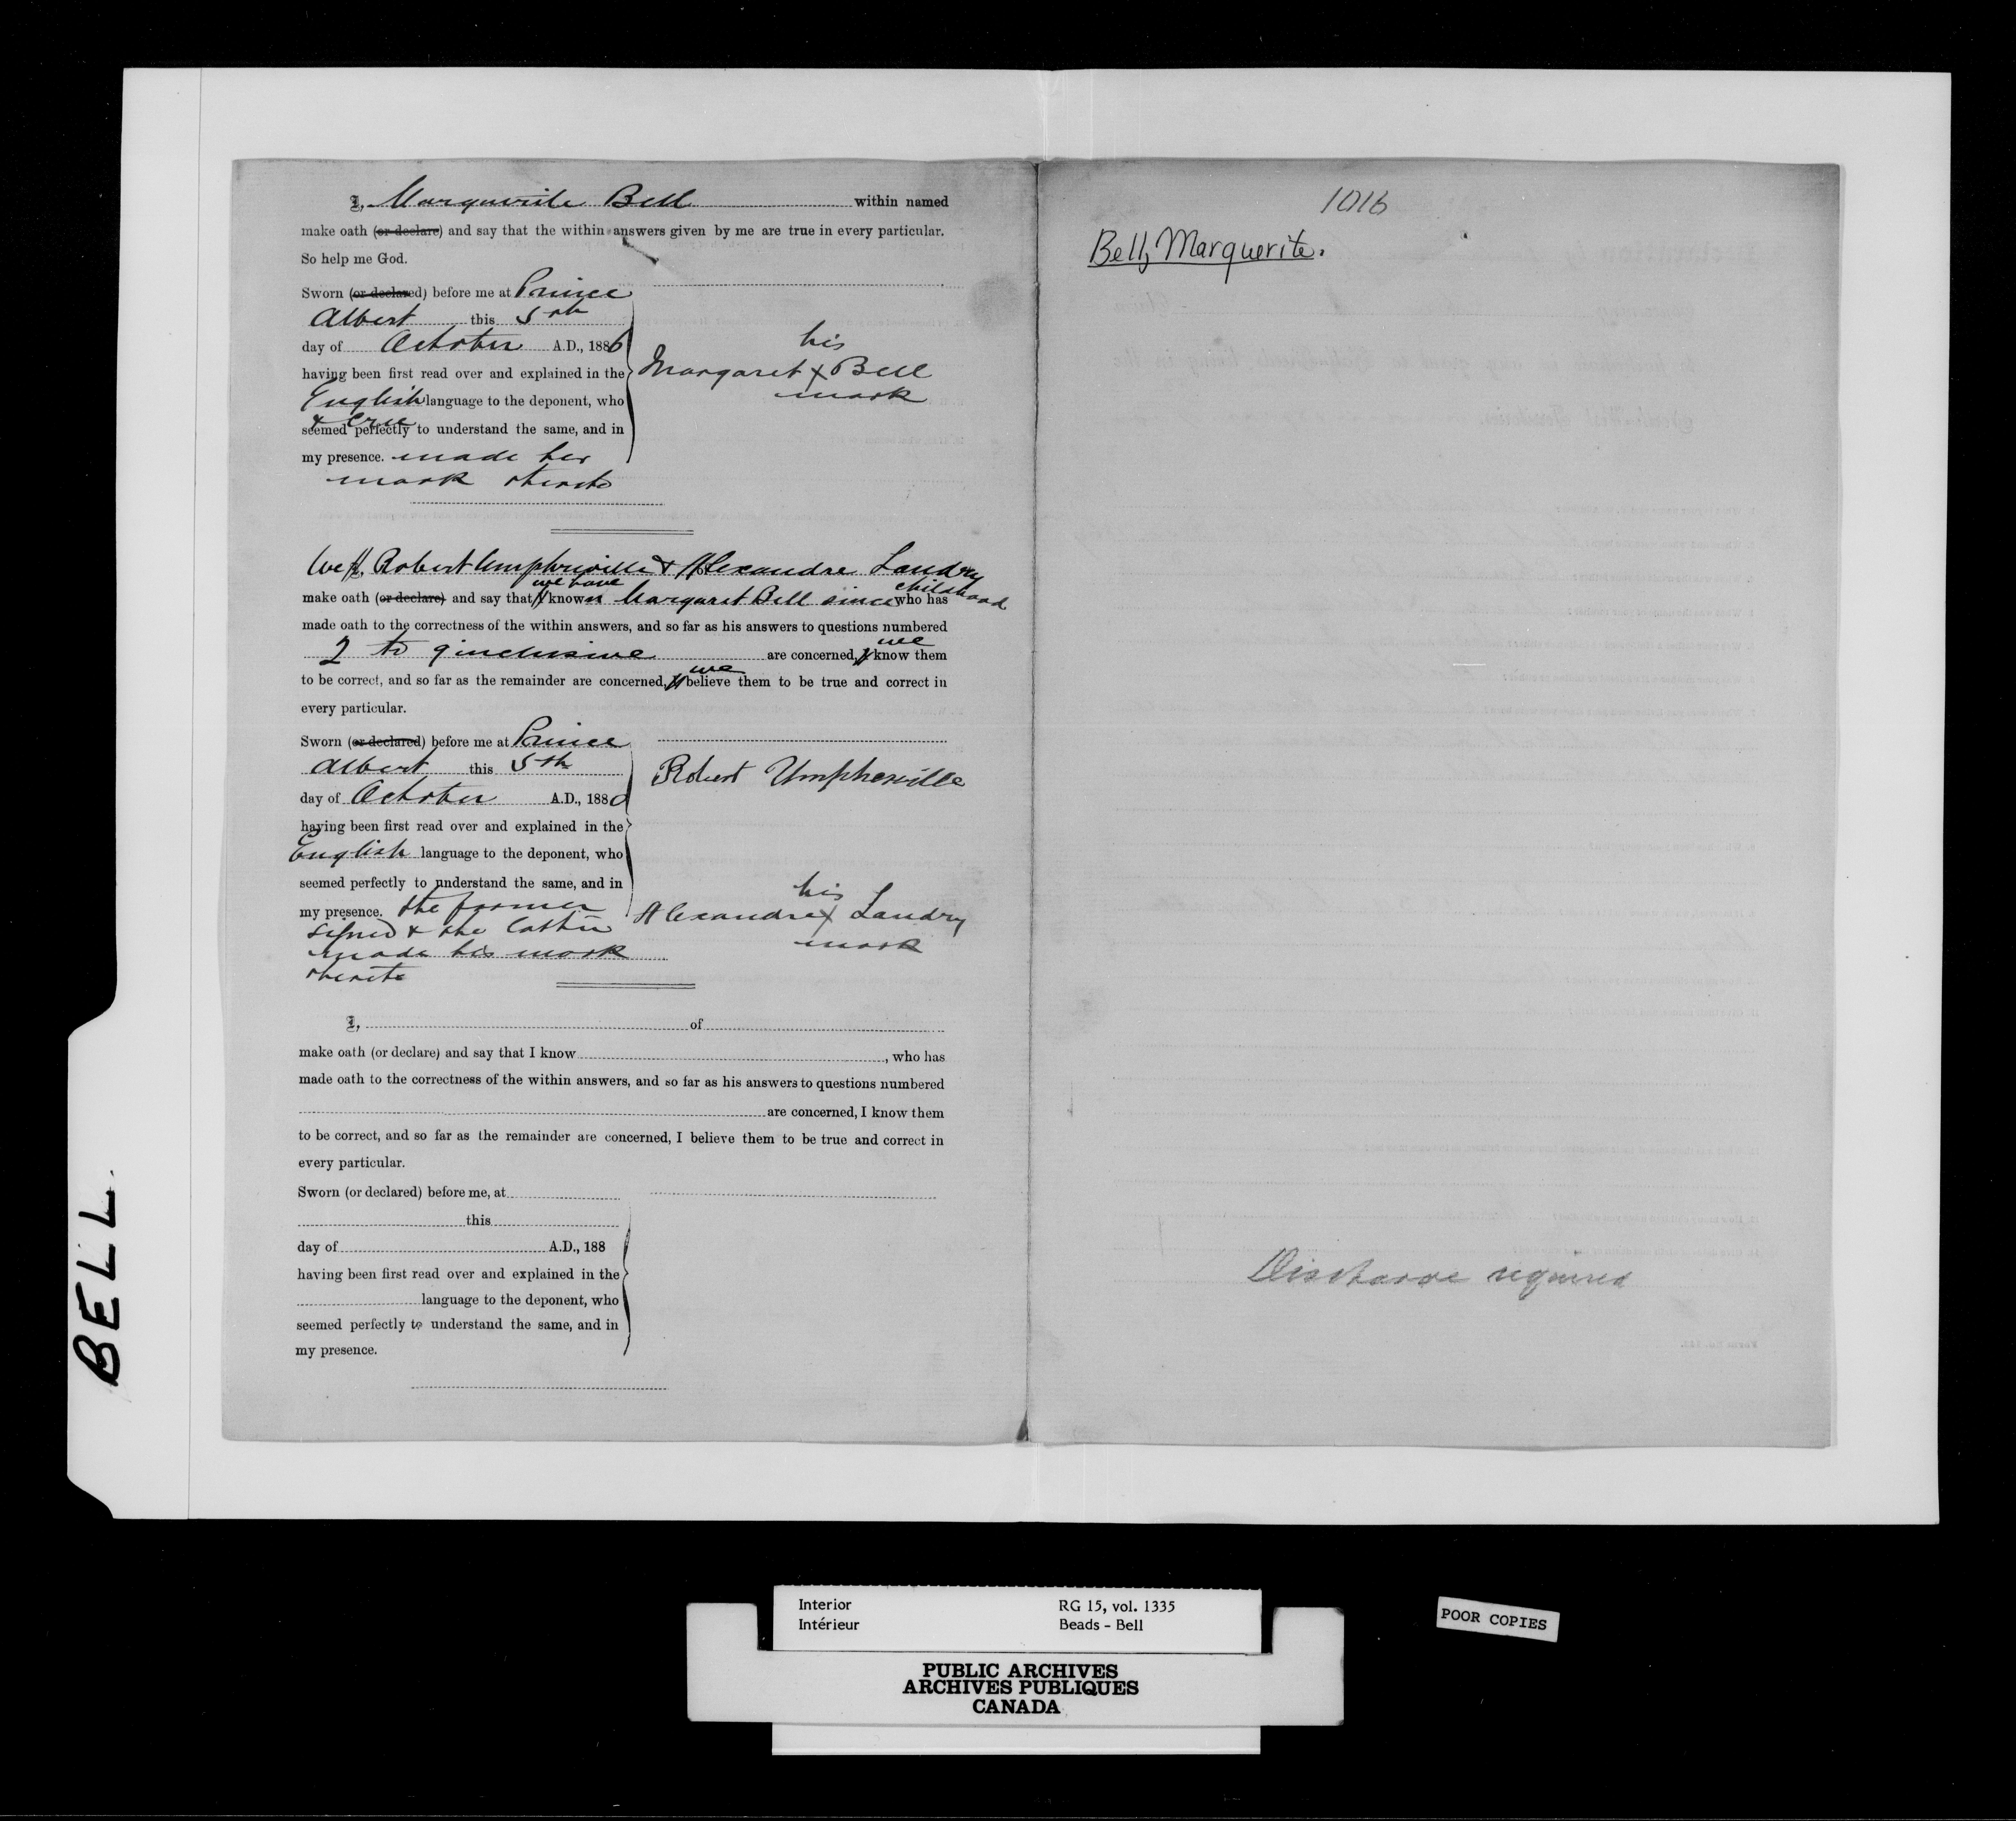 I, Marguerite Bell within named
make oath (or declare) and say that the within answers given by me are true in every particular.
So help me God.
Sworn (or declared) before me at Prince
Albert this 5th
day of October A.D., 1886
having been first read over and explained in the
English language to the deponent, who
& Cree
seemed perfectly to understand the same, and in
my presence. made her
mark thereto
his
Margaret X Bell
mark
We I, Robert Umpherville & Alexandre Landry
make oath (or declare) and say that I we have known Margaret Bell since childhood who has
made oath to the correctness of the within answers, and so far as his answers to questions numbered
2 to 9 inclusive are concerned, I we know them
to be correct, and so far as the remainder are concerned, I we believe them to be true and correct in
every particular.
Sworn (or declared) before me at Prince
Albert this 5th
day of October A.D., 1886
having been first read over and explained in the
English language to the deponent, who
seemed perfectly to understand the same, and in
my presence. the former
signed & the latter
made his mark
thereto
Robert Umpherville
his
Alexandre X Landry
mark
I, of
make oath (or declare) and say that I know , who has
made oath to the correctness of the within answers, and so far as his answers to questions numbered
are concerned, I know them
to be correct, and so far as the remainder are concerned, I believe them to be true and correct in
every particular.
Sworn (or declared) before me, at
this
day of A.D., 188
having been first read over and explained in the
language to the deponent, who
seemed perfectly to understand the same, and in
my presence.
1016
Bell, Marguerite.
Discharge required
BELL
Interior RG 15, vol. 1335
Intérieur Beads - Bell
PUBLIC ARCHIVES
ARCHIVES PUBLIQUES
CANADA
POOR COPIES